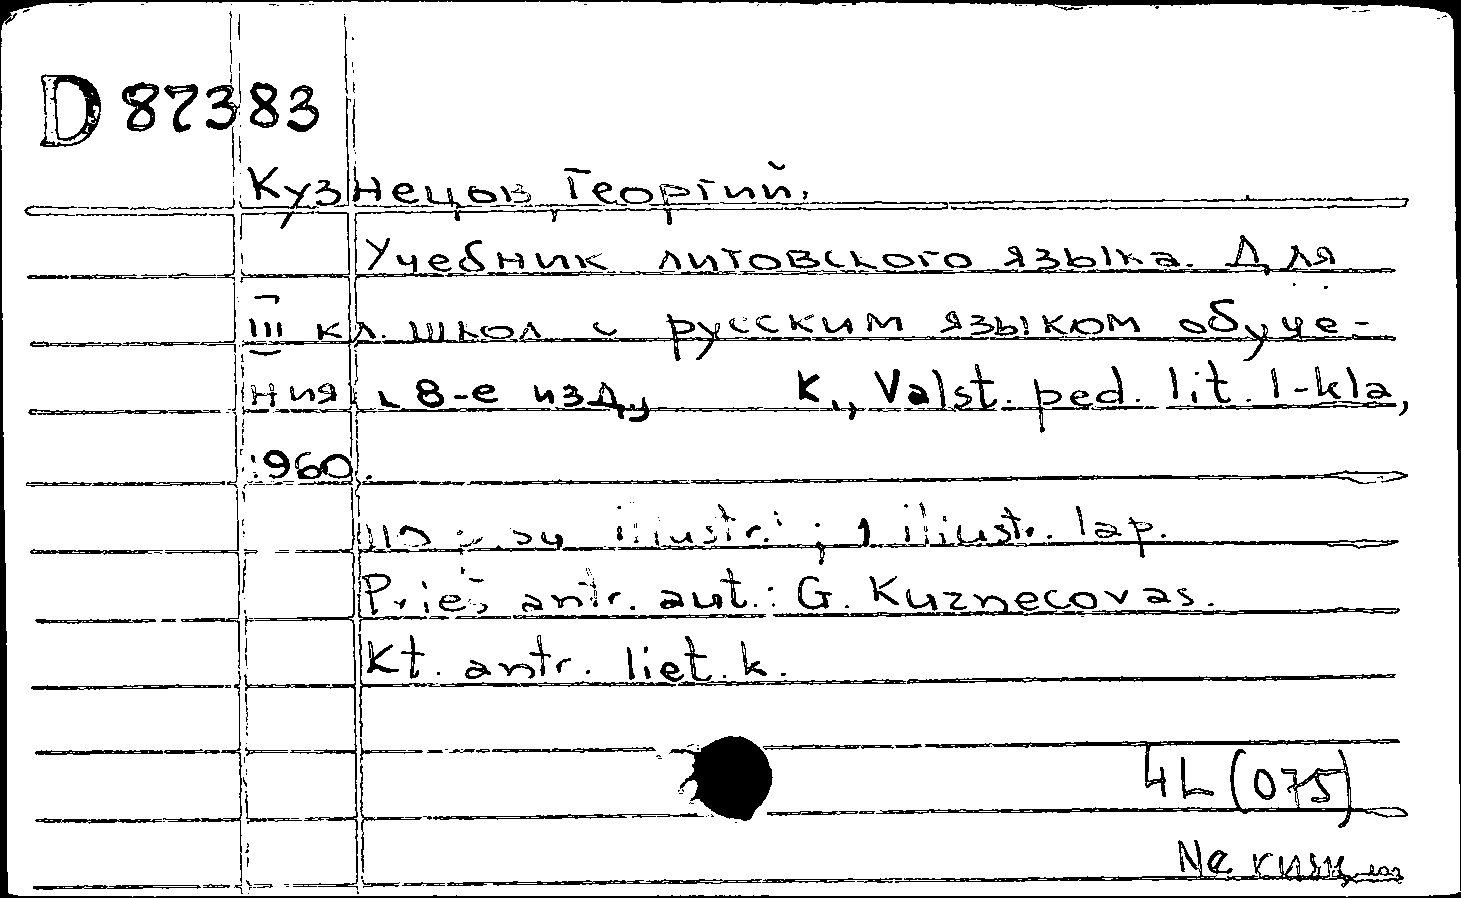 D 87383
Кузнецов, Георгий.
Учебник литовского языка. Для
III кл. школ с русским языком обуче-
ния. 8-е изд. K., Valst. ped. lit. l-kla,
1960.
su iliustr.; 1 iliustr. lap.
Prieš antr. aut.: G. Kuznecovas.
Kt. antr. liet. k.
4L(075)